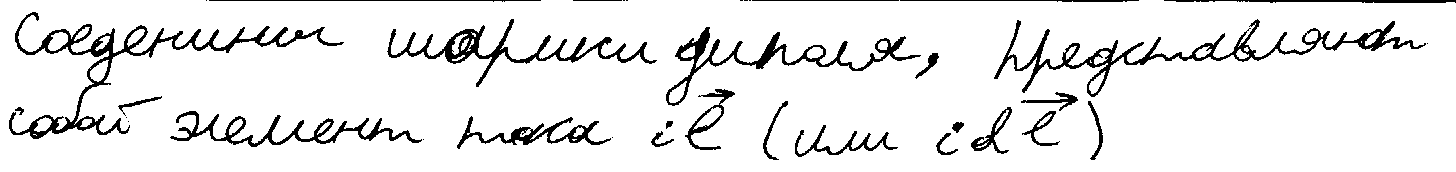 Соеденины шарики диполя, представляют
собой элемент тока $i\vec{\ell}$ (или $id\vec{\ell}$)